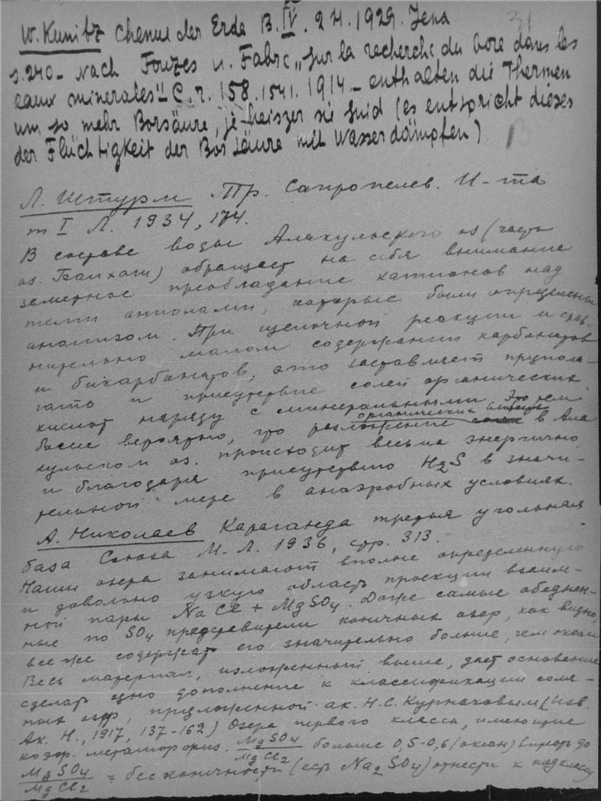 W. Kunitz Chemie der Erde B. IV. 2 H. 1929. Jena
s. 240 - Nach Fouzes u. Fabre „sur la recherche du bore dans les
eaux minerales“ - C. r. 158. 1541. 1914. - enthalten die Thermen
um so mehr Borsäure, je heiszer sie sind (es entspricht dieses
der Flüchtigkeit der Borsäure mit Wasserdämpfen)
Л. Штурм Тр. Сапропелев. И-та
т I Л. 1934, 174.
В составе воды Алакульского оз (часть
оз. Балхаш) обращает на себя внимание
заметное преобладание катионов над
теми анионами, которые были определены
анализом. При щелочной реакции и срав-
нительно малом содержании карбонатов
и бикарбонатов, это заставляет предпола-
гать и присутствие солей органических
кислот наряду с минеральными. Это тем
более вероятно, что разложение органических веществ в Ала
кульском оз. происходит весьма энергично
и благодаря присутствию H2S в значи-
тельной мере в анаэробных условиях.
А. Николаев Караганда третья угольная
база Союза М.-Л. 1936, стр. 313.
Наши озера занимают вполне определенную
и довольно узкую область проекции взаим-
ной пары NaCl + MgSO4. Даже самые обеднен-
ные по SO4 представители конечных озер, как видно,
все же содержат его значительно больше, чем океан
Весь материал, изложенный выше, дает основание
сделать одно дополнение к классификации соля-
ных озер, предложенной ак. Н.С. Курнаковым (Изв.
Ак. Н., 1917, 137-162) Озера первого класса, имеющие
коэф. метаморфиз. MgSO4/MgCl2 больше 0,5-0,6 (океан) вплоть до
MgSO4/MgCl2 = бесконечности (есть Na2SO4) отнести к подклассу